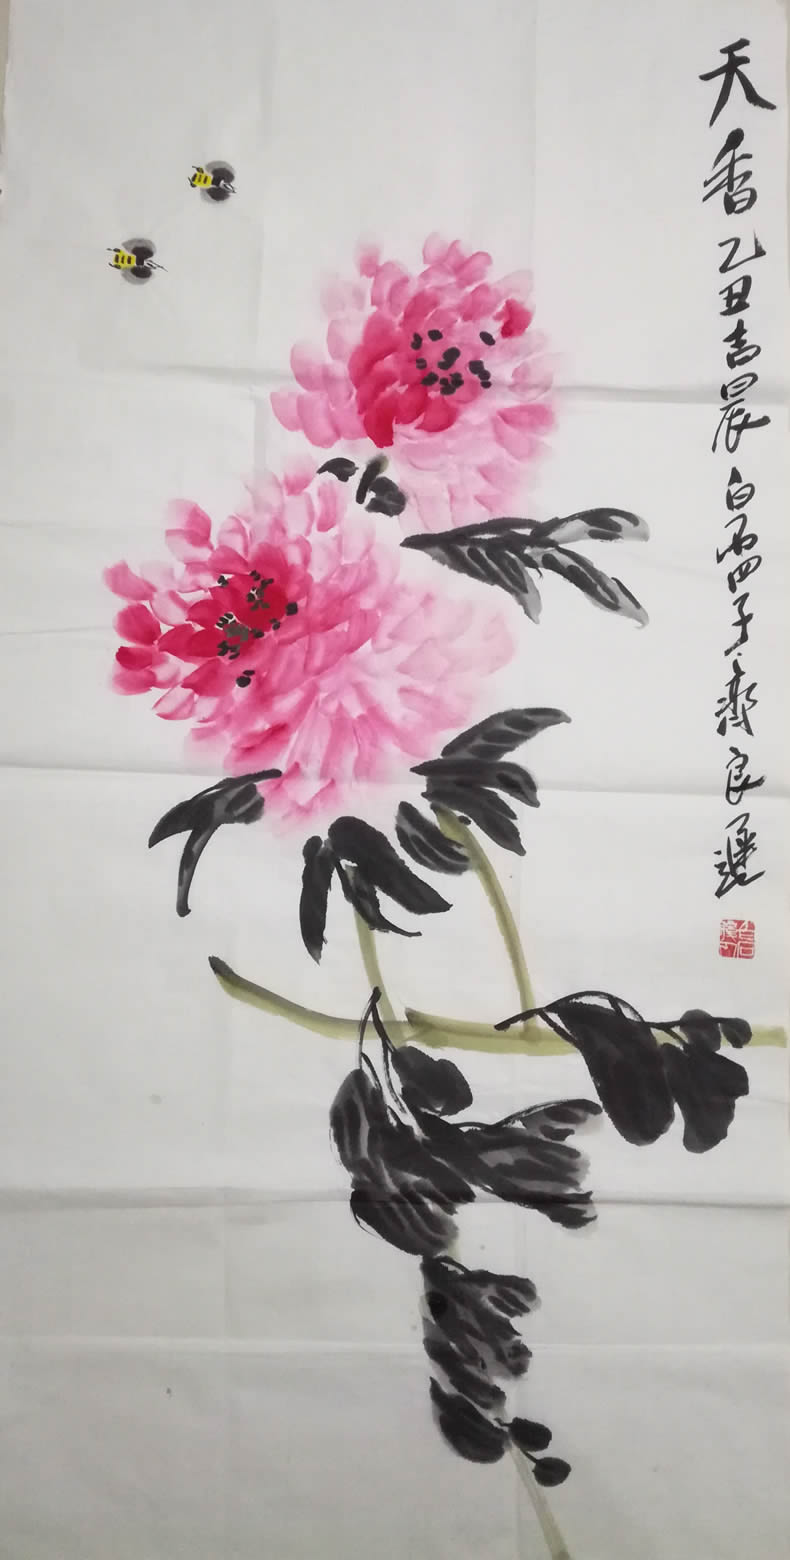 天香 乙丑吉晨 白石四子齊良遲